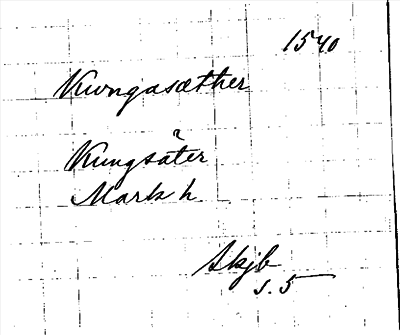 1540
Kwngasæther
Kungsäter
Mark h
Skjb
s. 5